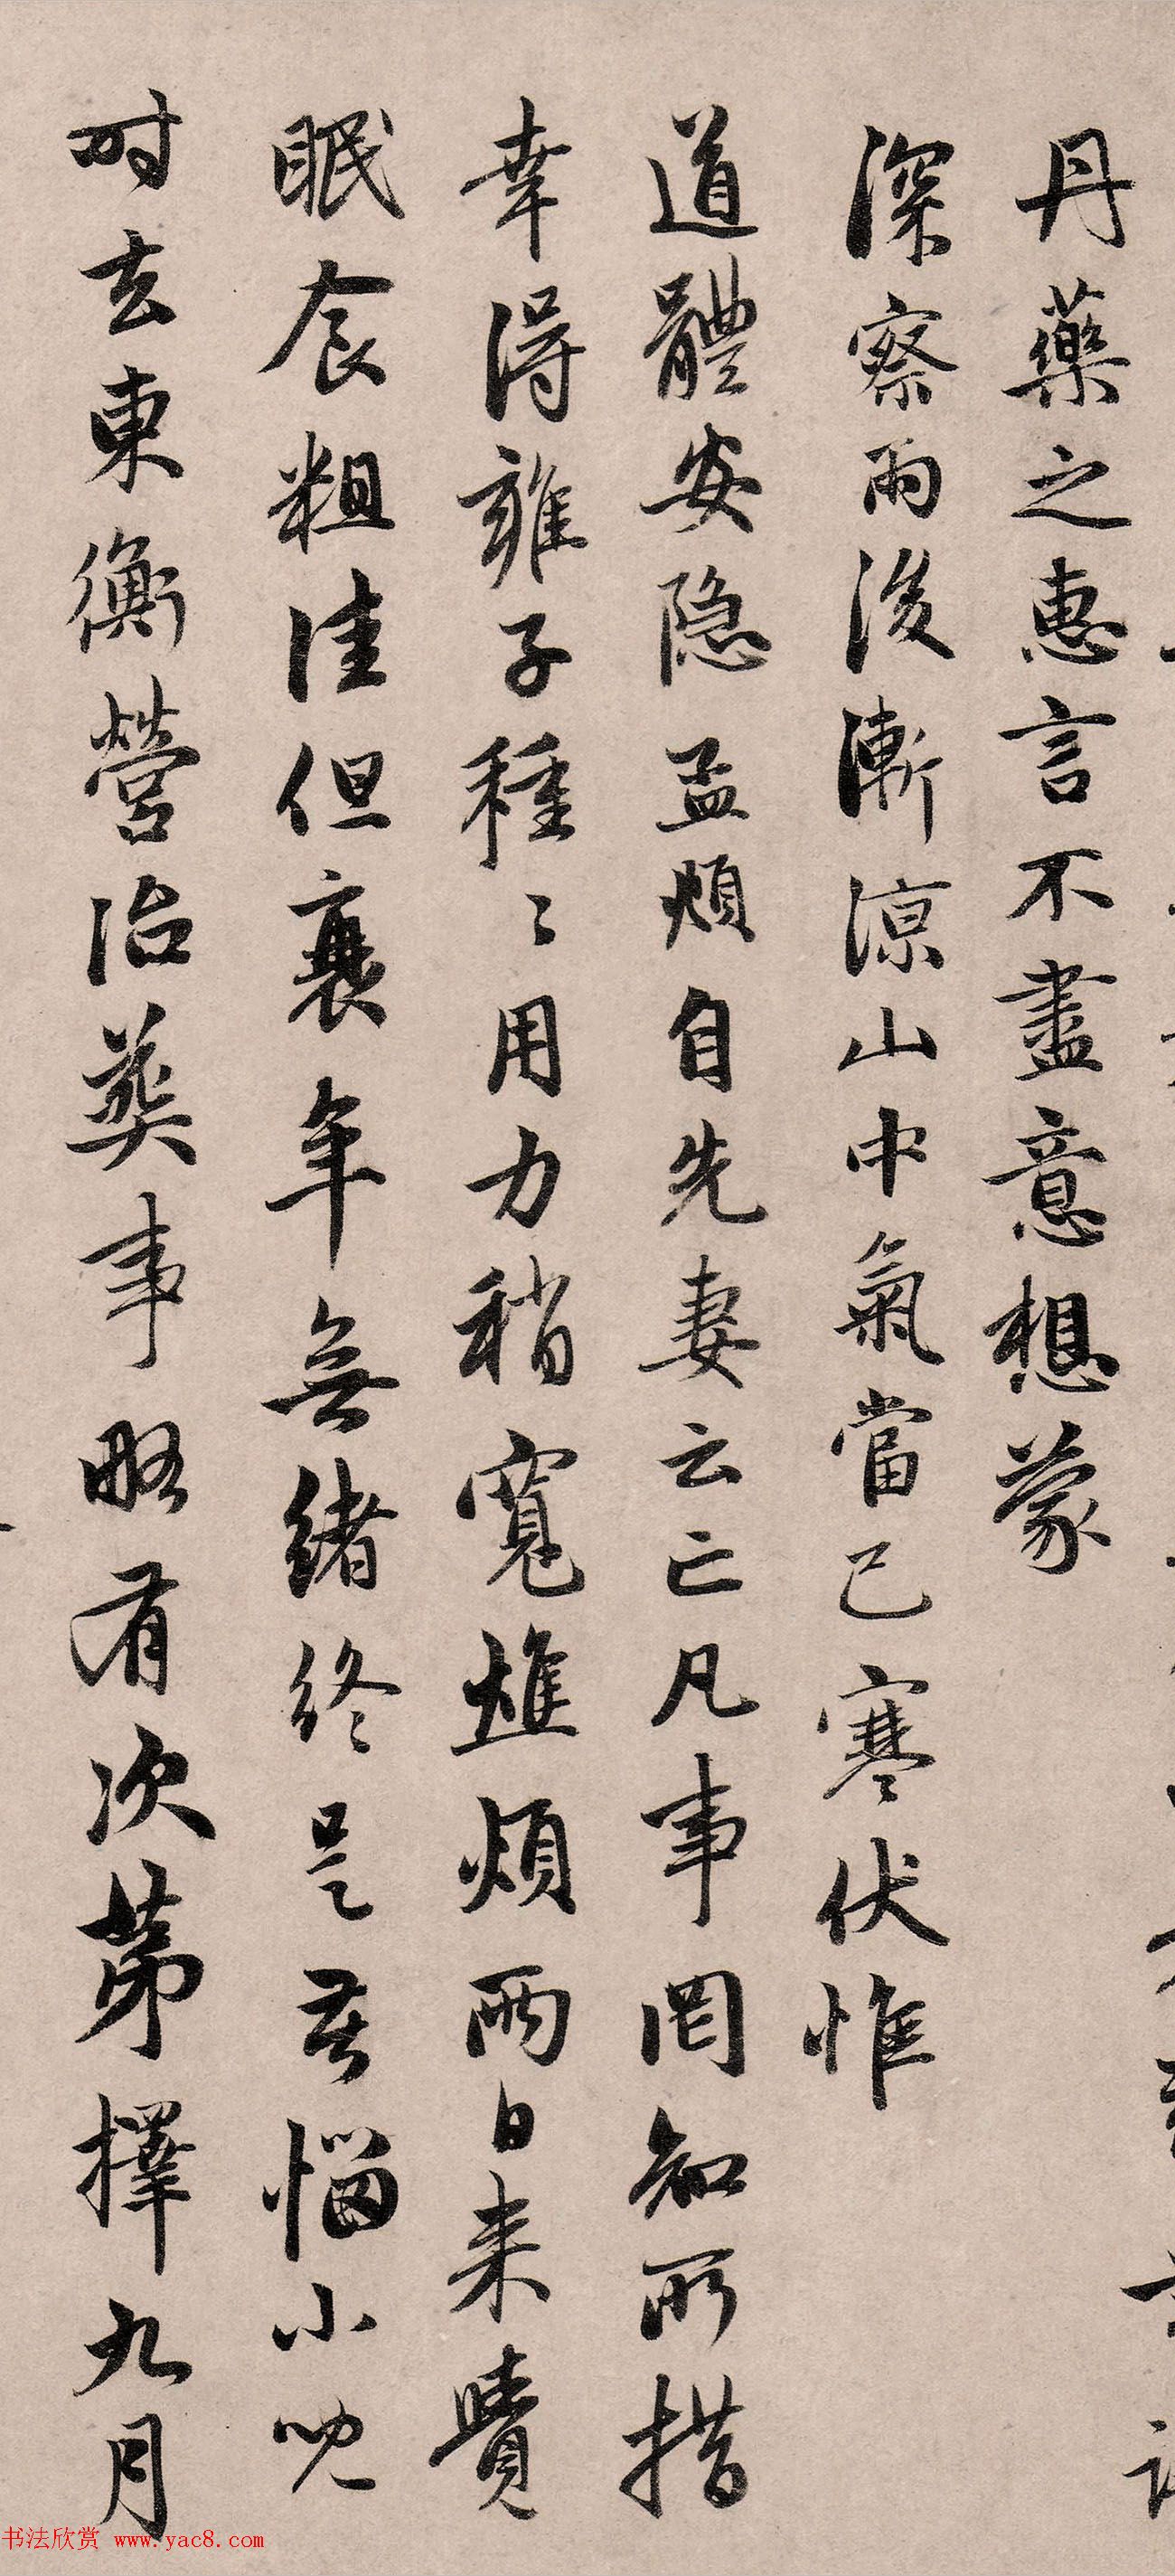 丹藥之惠言不盡意想蒙
深察雨後漸涼山中氣當已寒伏惟
道體安隱孟頫自先妻云亡凡事罔知所措
幸得雍子種種用力稍寬離煩兩日來覺
眠食粗佳但衰年無緒終是苦惱小兒
時去東衡營治葬事略有次第擇九月
书法欣赏 www.yac8.com